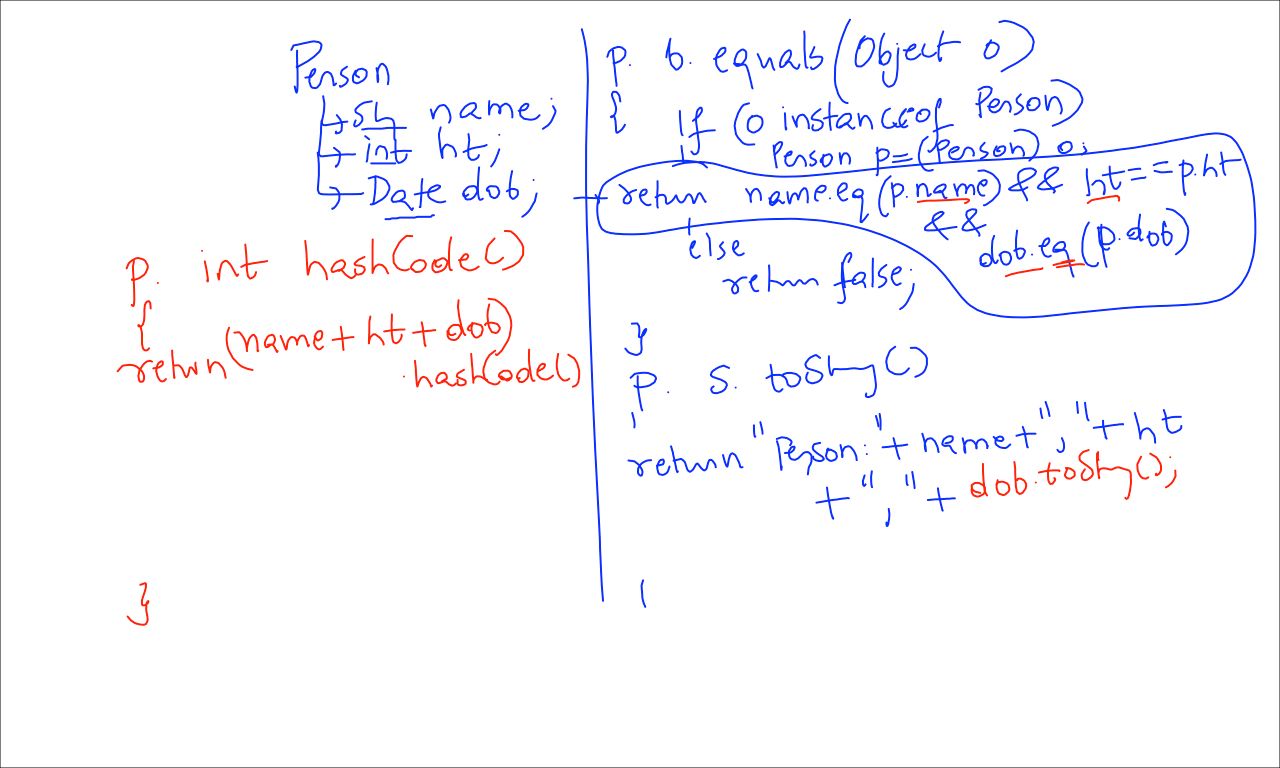 Person
Str name;
int ht;
Date dob;
p. int hashCode()
{
return (name + ht + dob)
.hashCode()
}
p. b. equals (Object o)
{ if (o instanceof Person)
Person p = (Person) o;
return name.eq (p.name) && ht == p.ht
&&
dob.eq (p.dob)
else
return false;
}
p. S. toString()
return "Person: " + name + ", " + ht
+ ", " + dob.toString();